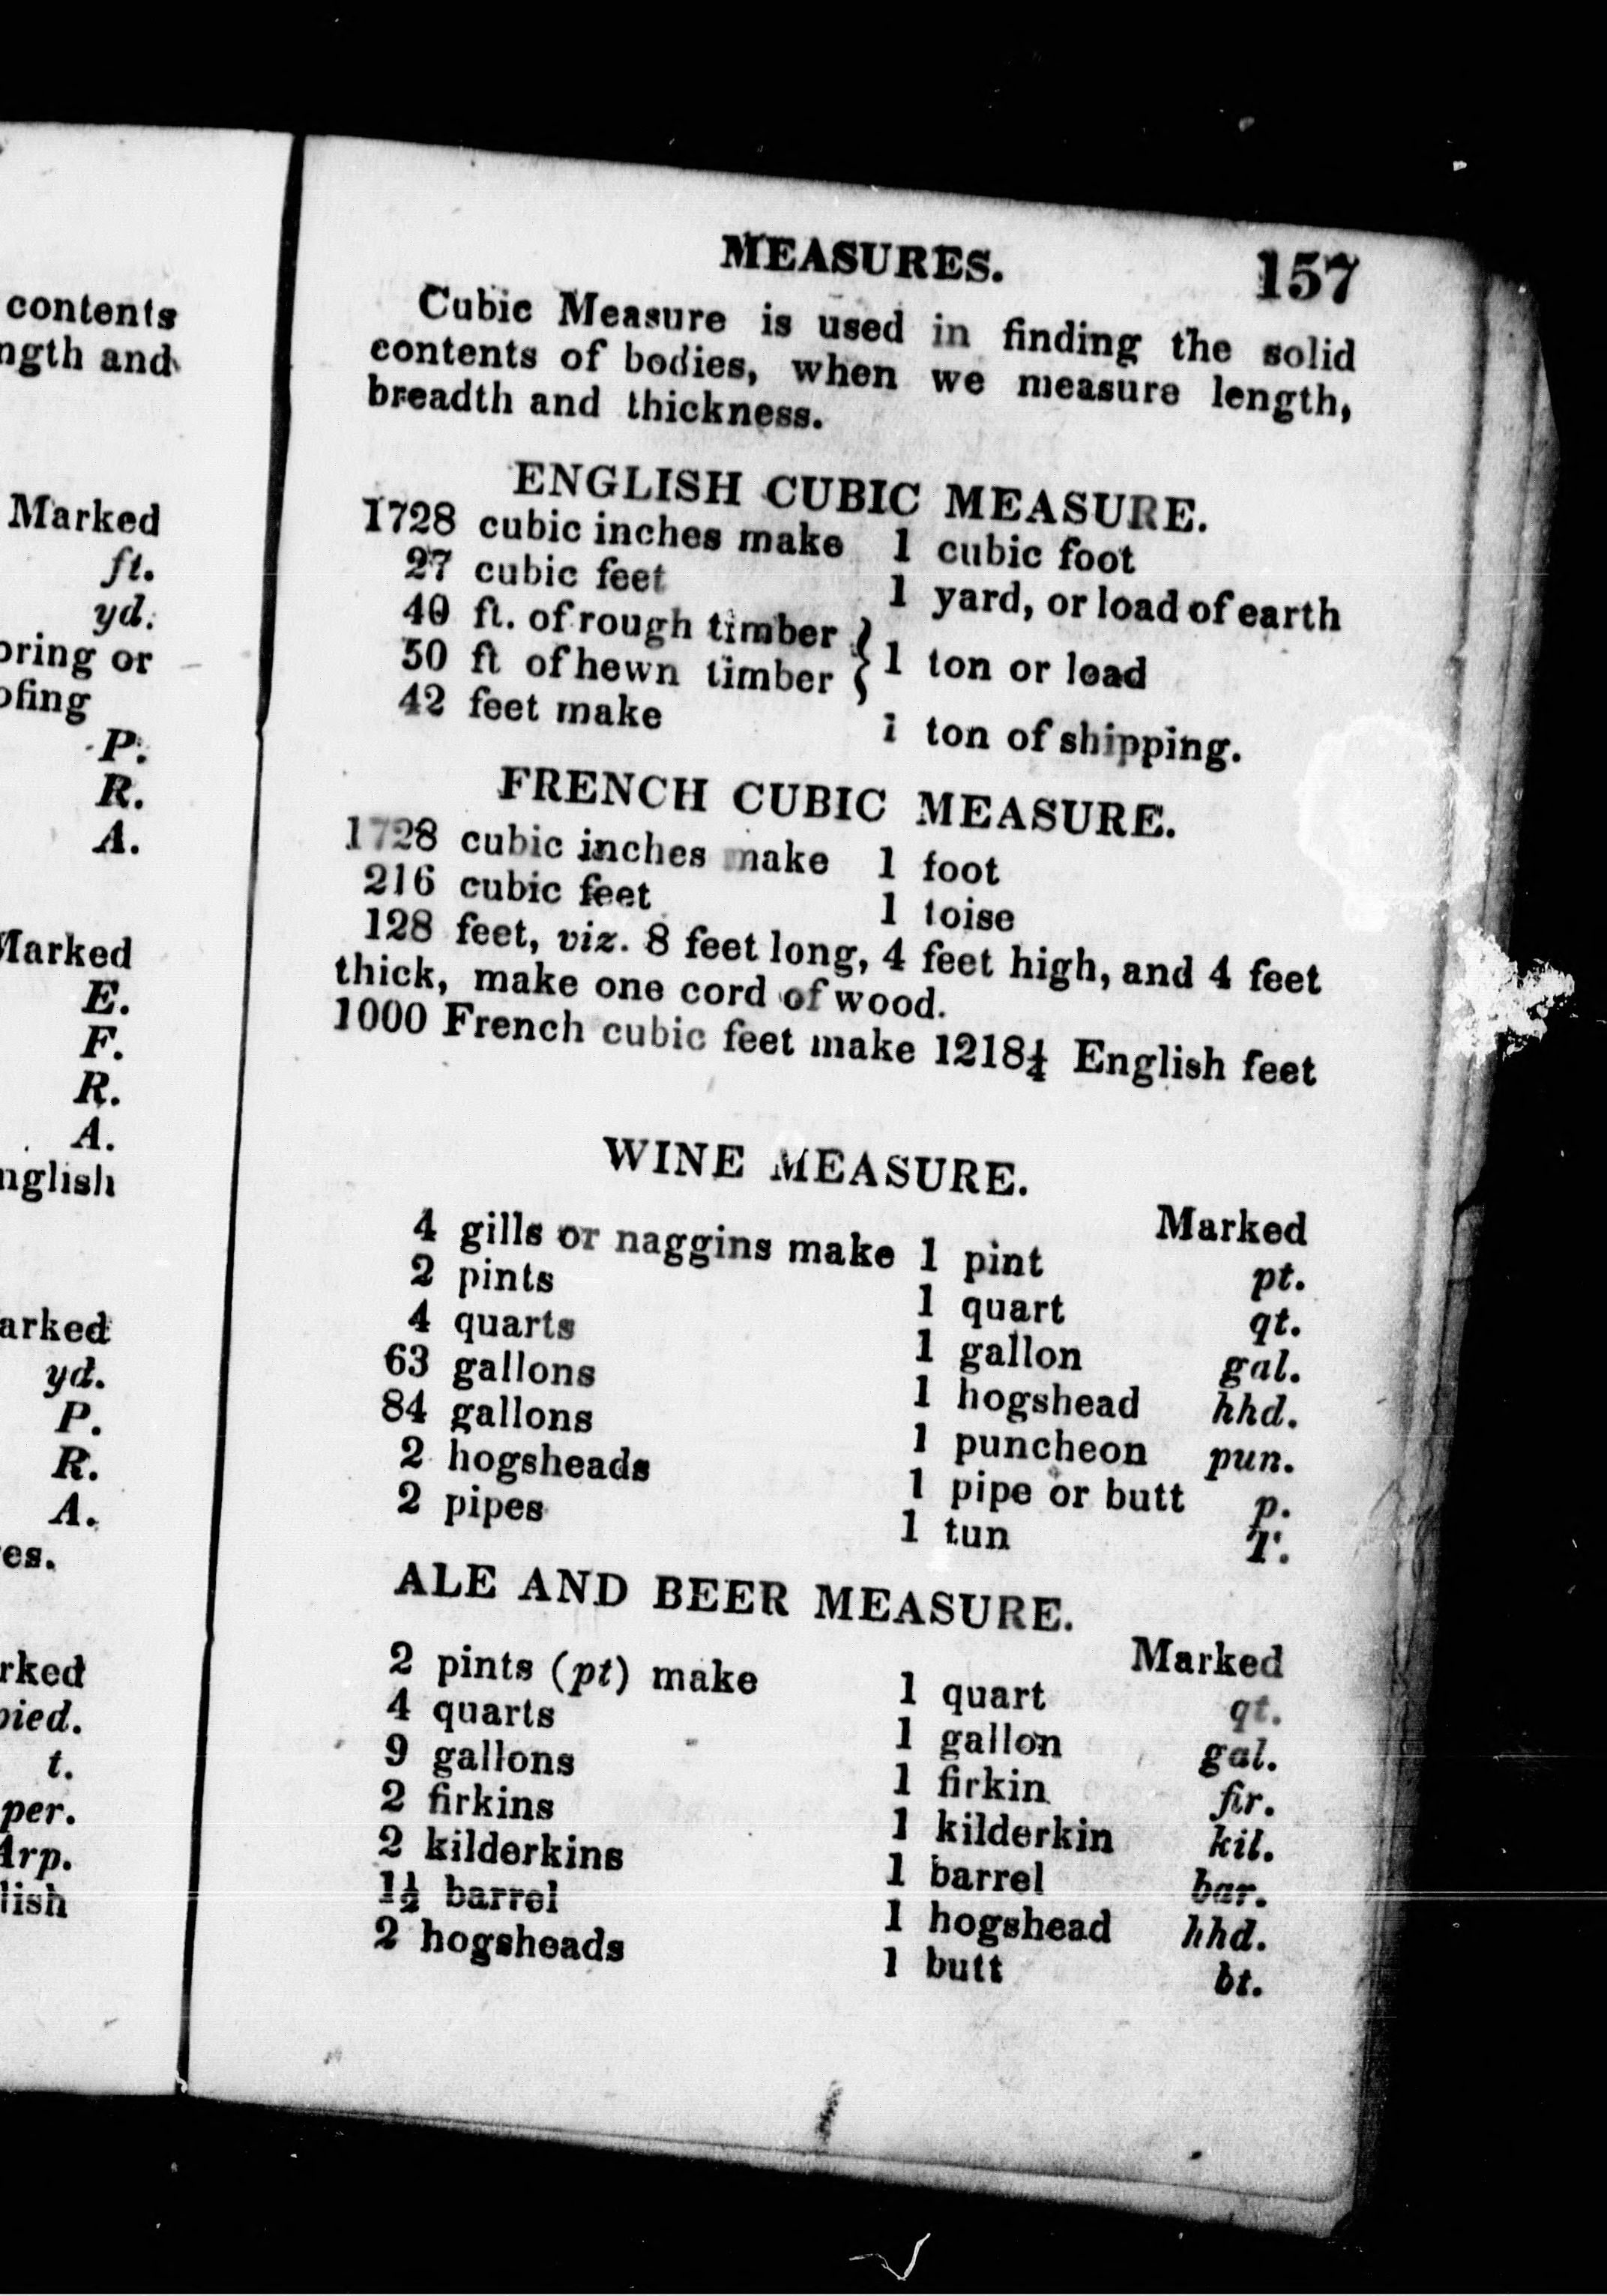 contents
ngth and
Marked
ft.
yd.
oring or
ofing
P.
R.
A.
Marked
E.
F.
R.
A.
nglish
arked
yd.
P.
R.
A.
es.
rked
pied.
t.
per.
Arp.
lish
MEASURES. 157
Cubic Measure is used in finding the solid
contents of bodies, when we measure length,
breadth and thickness.
ENGLISH CUBIC MEASURE.
1728 cubic inches make 1 cubic foot
27 cubic feet 1 yard, or load of earth
40 ft. of rough timber
50 ft of hewn timber } 1 ton or load
42 feet make 1 ton of shipping.
FRENCH CUBIC MEASURE.
1728 cubic inches make 1 foot
216 cubic feet 1 toise
128 feet, viz. 8 feet long, 4 feet high, and 4 feet
thick, make one cord of wood.
1000 French cubic feet make 1218¼ English feet
WINE MEASURE.
Marked
4 gills or naggins make 1 pint pt.
2 pints 1 quart qt.
4 quarts 1 gallon gal.
63 gallons 1 hogshead hhd.
84 gallons 1 puncheon pun.
2 hogsheads 1 pipe or butt p.
2 pipes 1 tun T.
ALE AND BEER MEASURE.
Marked
2 pints (pt) make 1 quart qt.
4 quarts 1 gallon gal.
9 gallons 1 firkin fir.
2 firkins 1 kilderkin kil.
2 kilderkins 1 barrel bar.
1½ barrel 1 hogshead hhd.
2 hogsheads 1 butt bt.